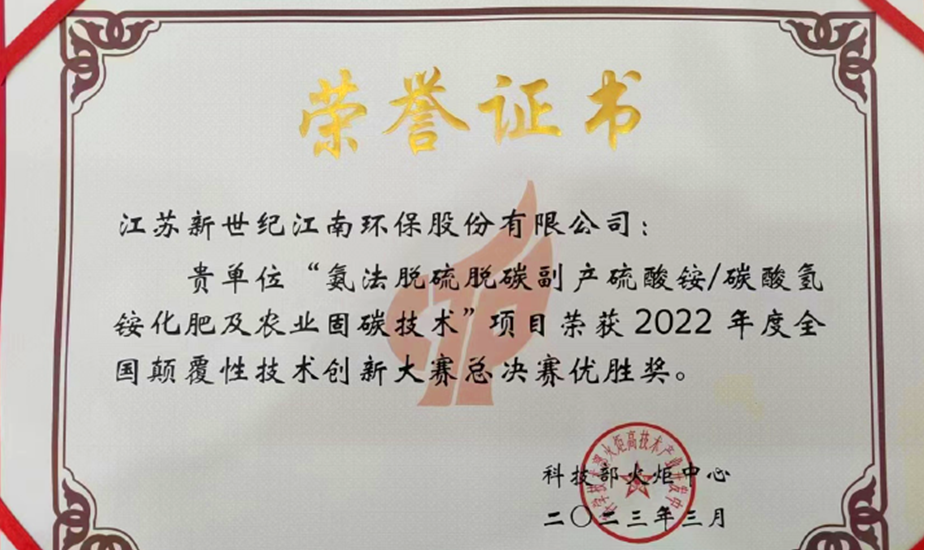 荣誉证书
江苏新世纪江南环保股份有限公司：
贵单位“氨法脱硫脱碳副产硫酸铵/碳酸氢
铵化肥及农业固碳技术”项目荣获 2022 年度全
国颠覆性技术创新大赛总决赛优胜奖。
科技部火炬中心
二〇二三年三月